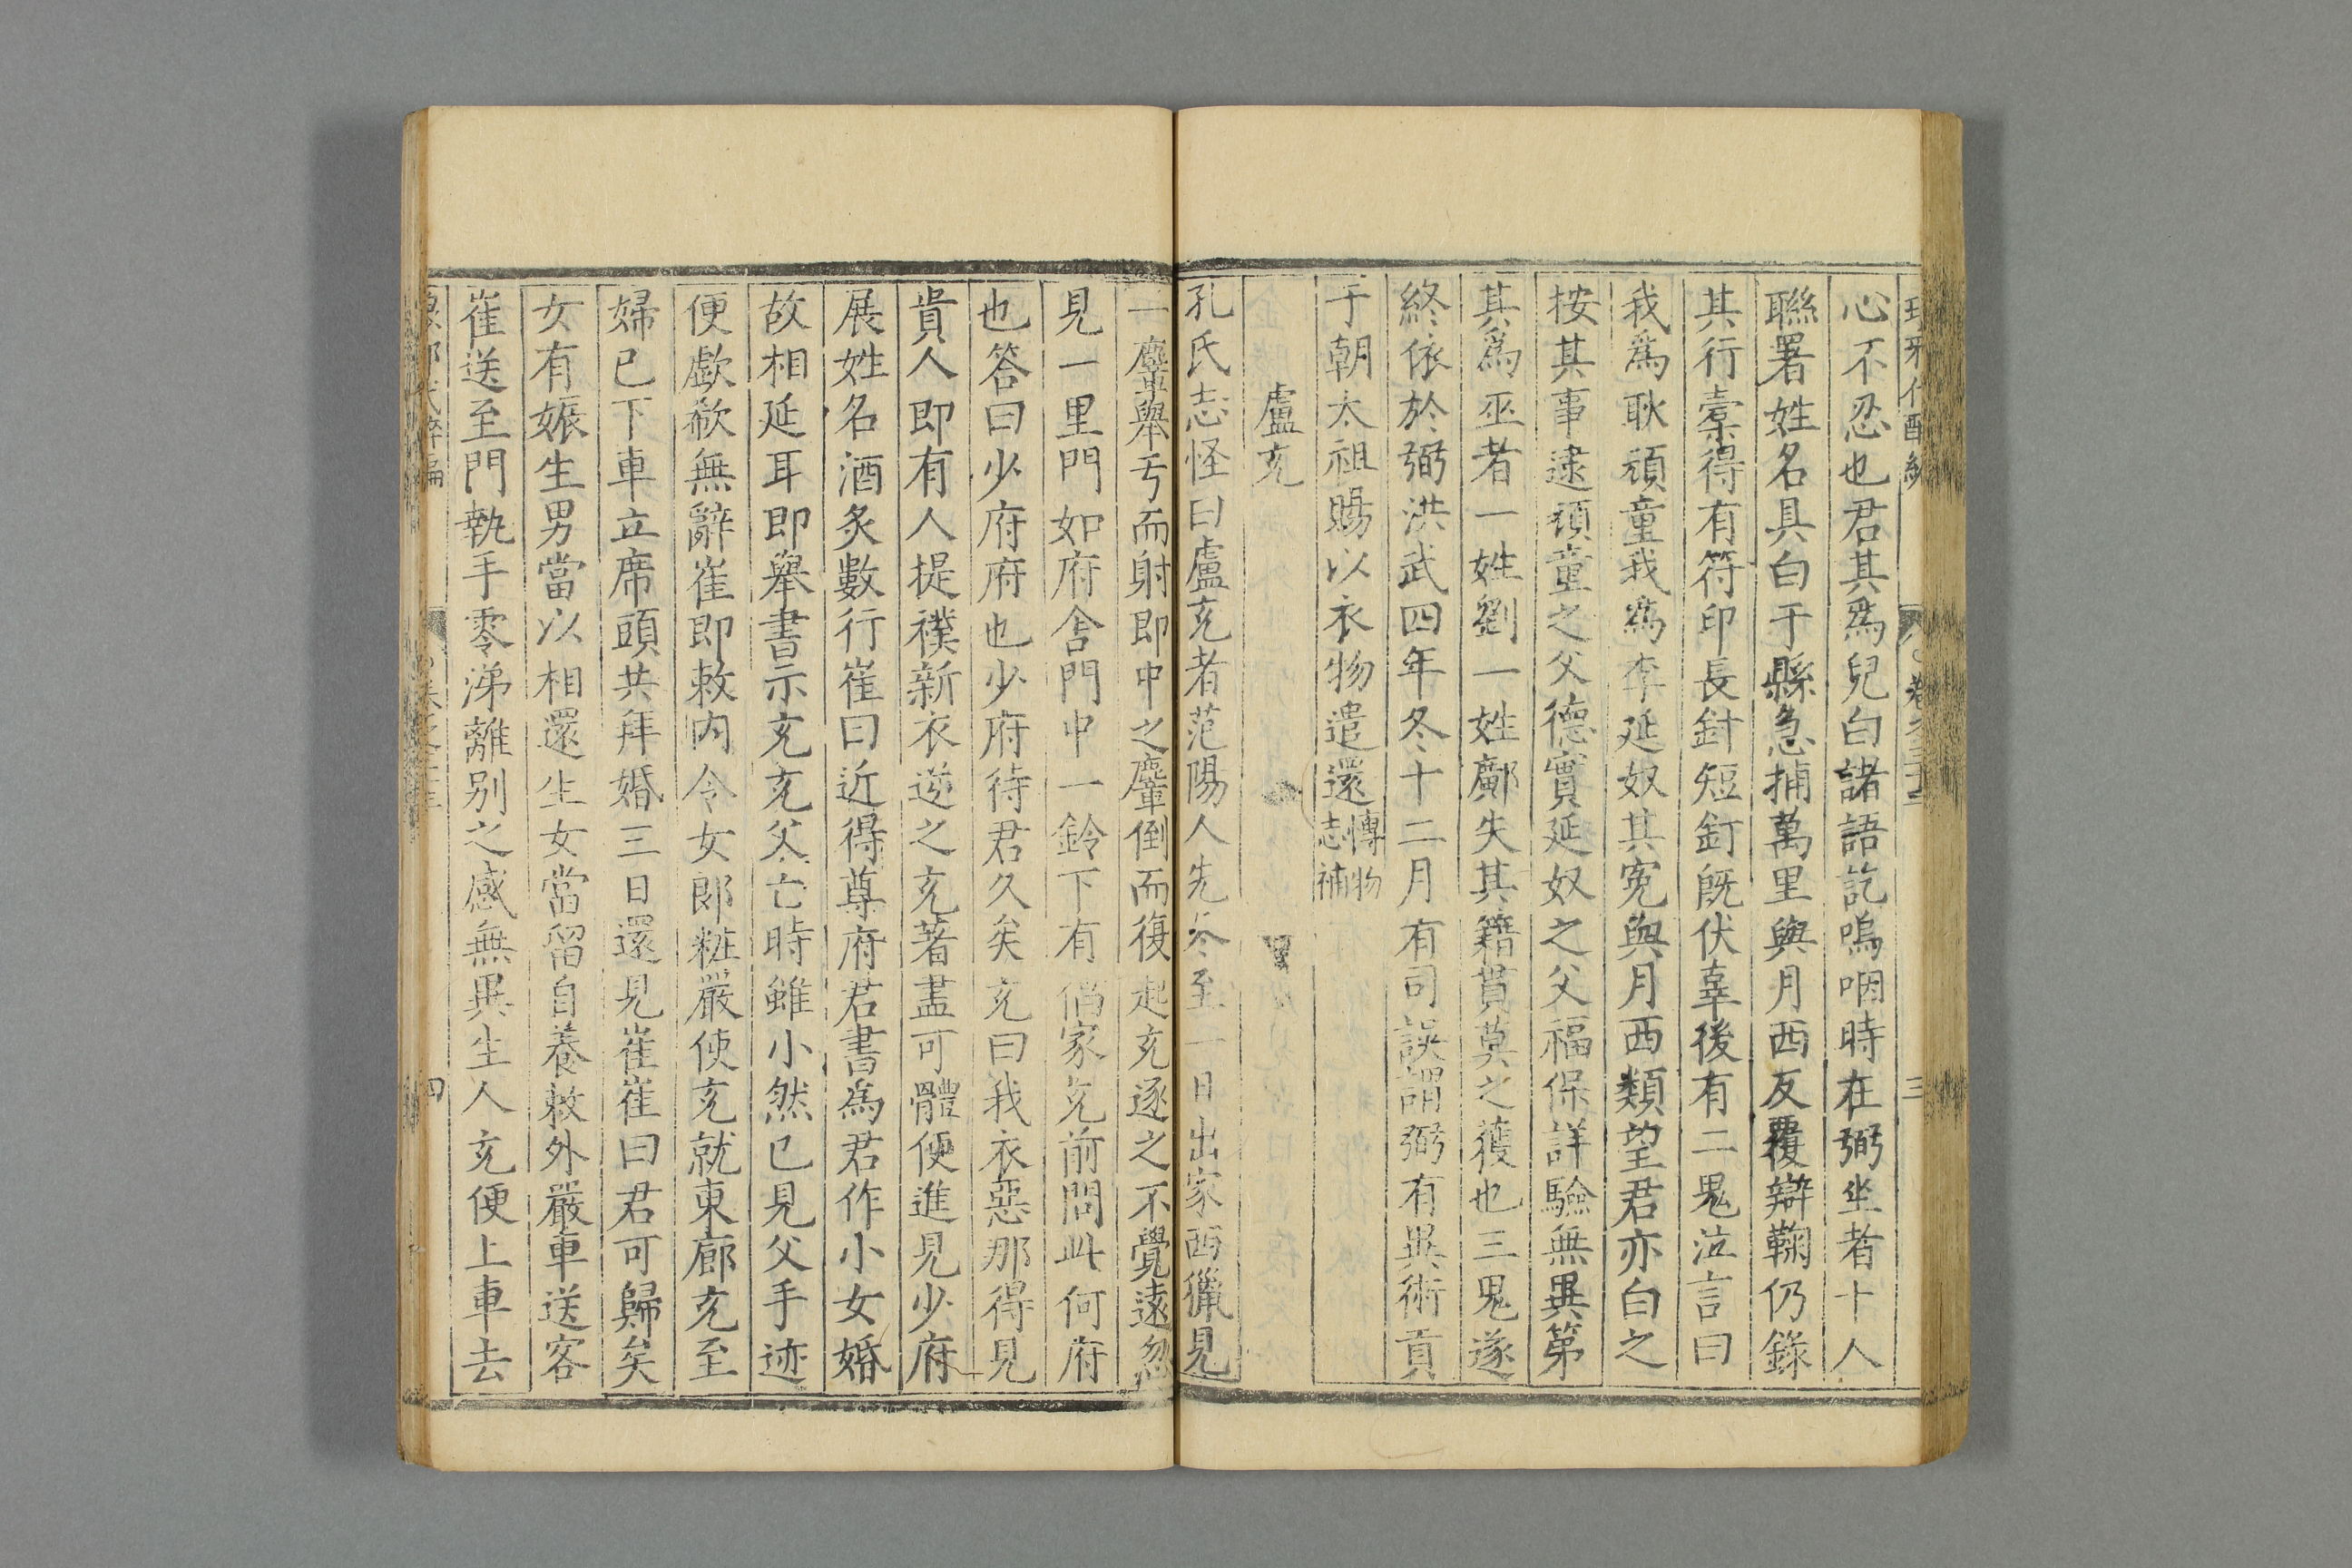 心不忍也君其爲兒白諸語訖嗚咽時在弼坐者十人
聯署姓名具白于縣急捕萬里與月西反覆辯鞠仍錄
其行橐得有符印長針短釘旣伏辜後有二鬼泣言曰
我爲耿頑童我爲李延奴其寃與月西類望君亦白之
按其事逮頑童之父德寳延奴之父福保詳驗無異第
其爲巫者一姓劉一姓鄺失其籍貫莫之獲也三鬼遂
終依於弼洪武四年冬十二月有司誤謂弼有異術貢
于朝太祖賜以衣物遣還博物志補
盧充
孔氏志怪曰盧充者范陽人先冬至一日出家西獵見
一麞舉弓而射即中之麞倒而復起充逐之不覺遠忽
見一里門如府舍門中一鈴下有倡家充前問此何府
也答曰少府府也少府待君久矣充曰我衣惡那得見
貴人即有人提襆新衣逆之充著盡可體便進見少府
展姓名酒炙數行崔曰近得尊府君書爲君作小女婚
故相延耳即舉書示充充父亡時雖小然已見父手迹
便歔欷無辭崔即敕内令女郎粧嚴使充就東廊充至
婦已下車立席頭共拜婚三日還見崔崔曰君可歸矣
女有娠生男當以相還生女當留自養敕外嚴車送客
崔送至門執手零涕離别之感無異生人充便上車去